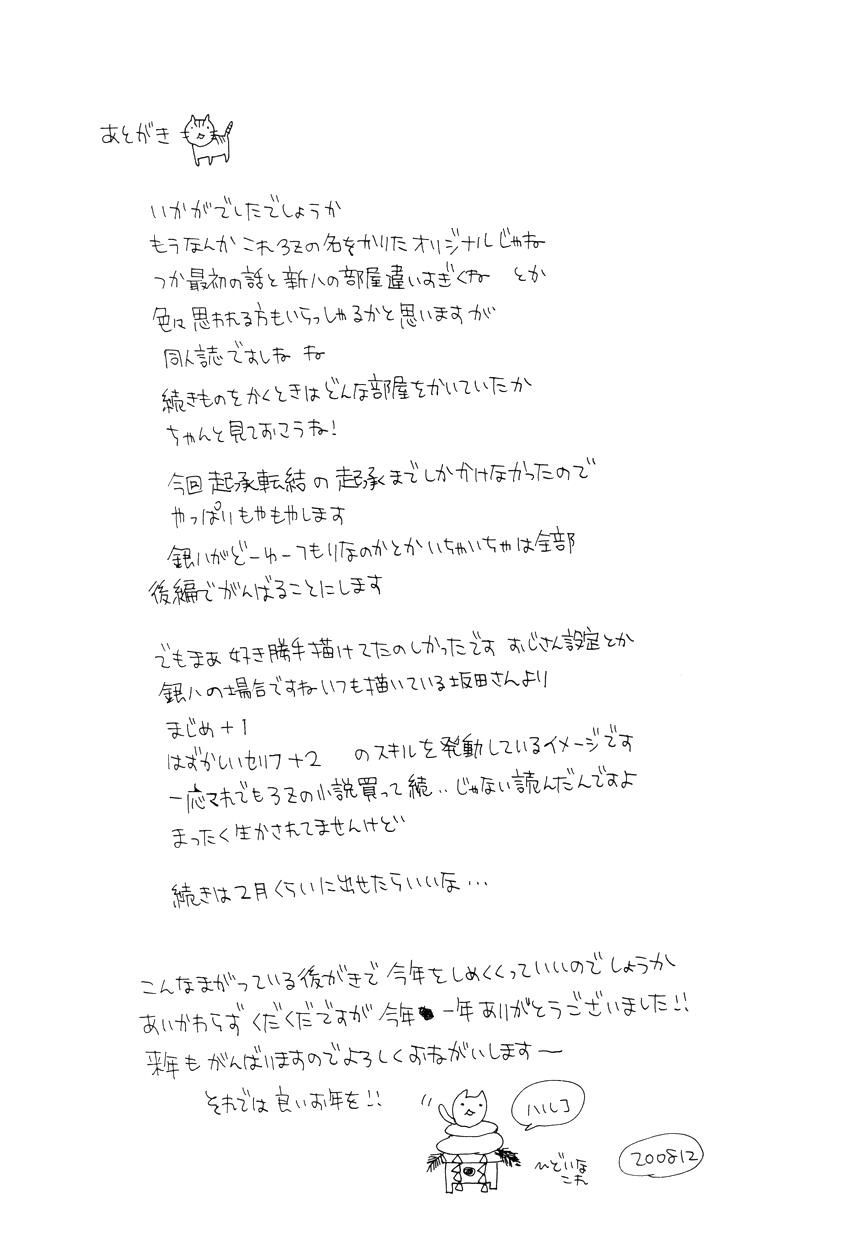 あとがき
いかがでしたでしょうか
もうなんかこれ3Zの名をかりたオリジナルじゃね
つか最初の話と新八の部屋違いすぎくね とか
色々思われる方もいらっしゃるかと思いますが
同人誌ですしね ね
続きものをかくときはどんな部屋をかいていたか
ちゃんと見ておこうね!
今回起承転結の起承までしかかけなかったので
やっぱりもやもやします
銀八がどーゆーつもりなのかとかいちゃいちゃは全部
後編でがんばることにします
でもまあ好き勝手描けてたのしかったです おじさん設定とか
銀八の場合ですねいつも描いている坂田さんより
まじめ+1
はずかしいセリフ+2 のスキルを発動しているイメージです
一応これでも3Zの小説買って続‥じゃない読んだんですよ
まったく生かされてませんけど
続きは2月くらいに出せたらいいな…
こんなまがっている後がきで今年をしめくくっていいのでしょうか
あいかわらずぐだぐだですが今年一年ありがとうございました!!
来年もがんばりますのでよろしくおねがいします〜
それでは良いお年を!!
ハルコ
ひどいな
これ
200812